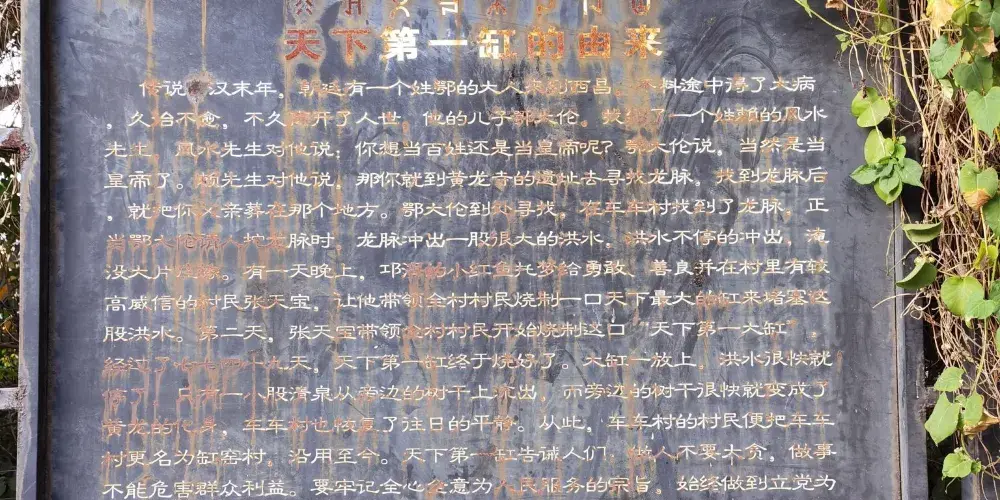 天下第一缸的由来
传说 汉末年，朝廷有一个姓鄂的大人来到西昌，不料途中得了大病
，久治不愈，不久离开了人世，他的儿子鄂大伦，找到了一个姓赖的风水
先生，风水先生对他说：你想当百姓还是当皇帝呢？鄂大伦说，当然是当
皇帝了。 先生对他说，那你就到黄龙寺的遗址去寻找龙脉，找到龙脉后
，就把你父亲葬在那个地方。鄂大伦到处寻找，在车车村找到了龙脉，正
当鄂大伦 人挖龙脉时，龙脉冲出一股很大的洪水，洪水不停的冲出，淹
没大片 。有一天晚上，邛海的小红鱼托梦给勇敢、善良并在村里有较
高威信的村民张天宝，让他带领全村村民烧制一口天下最大的缸来堵塞这
股洪水。第二天，张天宝带领全村村民开始烧制这口“天下第一大缸”，
经过了七七四十九天，天下第一缸终于烧好了。大缸一放上，洪水很快就
停了，只有一小股清泉从旁边的树干上流出，而旁边的树干很快就变成了
黄龙的化身，车车村也恢复了往日的平静。从此，车车村的村民便把车车
村更名为缸窑村，沿用至今。天下第一缸告诫人们，做人不要太贪，做事
不能危害群众利益。要牢记全心全意为人民服务的宗旨，始终做到立党为